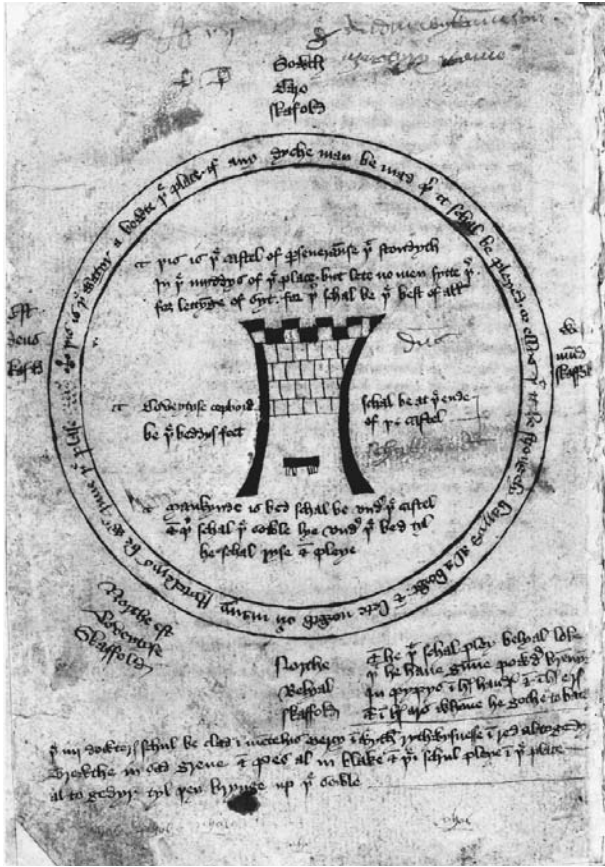 Sowth
Caro
skafold
þis is þe watyr a bowte þe place if any dyche may be mad þer it schal be pleyed or ellys þat it be strongely barryd al a bowt & lete nowth ouyr many stytelerys be wt inne þe plase
þis is þe castel of perseueraunse þt stondyth
In þe myddys of þe place but lete no men sytte þer
for lettynge of syt for þer schal be þe best of all
Est
deus
skafold
W
mund
skaffold
Coveytyse copbord
be þe beddys feet
schal be at þe ende
of þe castel
Mankynde is bed schal be vndyr þe castel
& þer schal þe sowle lye vndyr þe bed tyl
he schal ryse & pleye
Northe est
Coveytyse
Skaffold
Northe
Belyal
skaffold
& he þt schal pley belyal loke
þt he haue gunne powdyr brennyng
In pypys i his handis & i his ers
& i his ars whanne he gothe to batayl
þe iiij dowterys schul be clad i mentelys Mercy i wyth rythwysnesse i red altogedyr
Trewthe in sad grene & Pes al in blake & þei schul pleye i þe place
al to gedyr tyl þey brynge up þe sowle